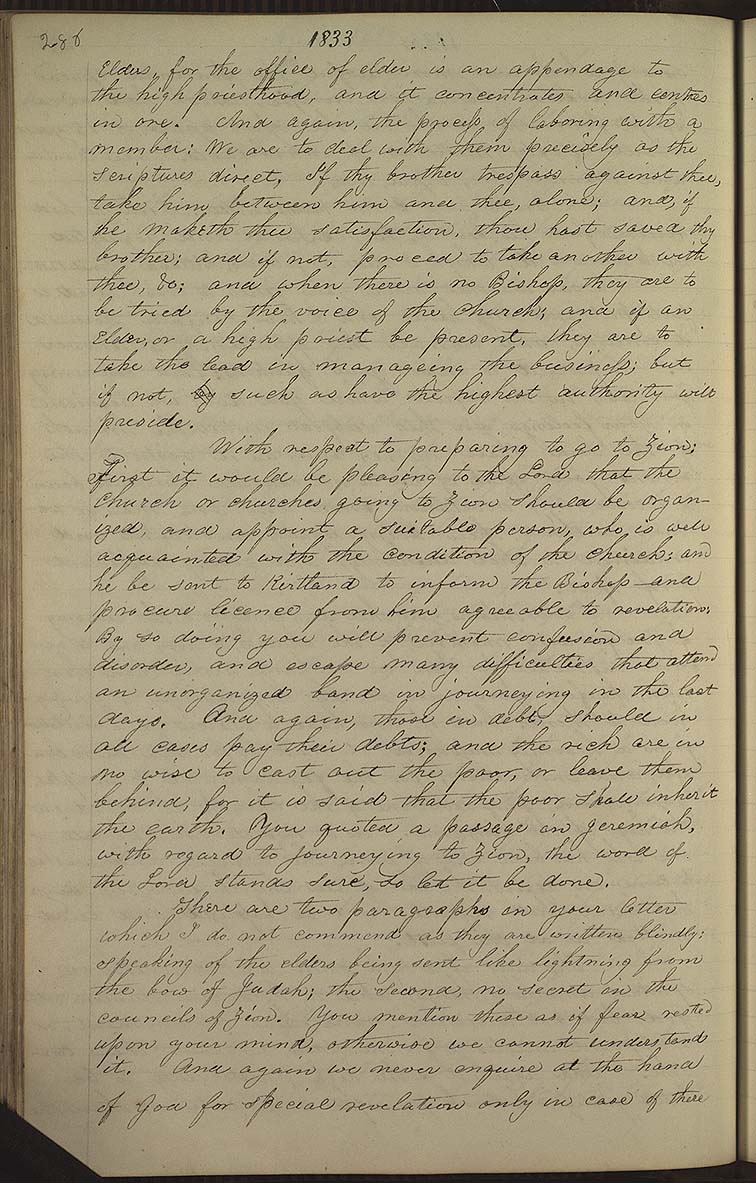 286
1833
Elders, for the office of elder is an appendage to
the high priesthood, and it concentrates and centres
in one. And again, the process of laboring with a
member: We are to deal with them precisely as the
scriptures direct, If thy brother trespass against thee,
take him between him and thee, alone; and, if
he maketh thee satisfaction, thou hast saved thy
brother; and if not, proceed to take another with
thee, &c; and when there is no Bishop, they are to
be tried by the voice of the church; and if an
Elder, or a high priest be present, they are to
take the lead in manageing the business; but
if not, by such as have the highest authority will
preside.
With respect to preparing to go to Zion;
First it would be pleasing to the Lord that the
church or churches going to Zion should be organ-
ized, and appoint a suitable person, who is well
acquainted with the condition of the church; and
he be sent to Kirtland to inform the Bishop and
procure licence from him agreeable to revelation;
By so doiing you will prevent confusion and
disorder, and escape many difficulties that attend
an unorganized band in journeying in the last
days. And again, those in debt, should in
all cases pay their debts; and the rich are in
no wise to cast out the poor, or leave them
behind, for it is said that the poor shall inherit
the earth. You quoted a passage in Jeremiah,
with regard to journeying to Zion, the word of
the Lord stands sure, so let it be done.
There are two paragraphs in your letter
which I do not commend as they are written blindly;
speaking of the elders being sent like lightning from
the bow of Judah; the second, no secret in the
councils of Zion. You mention these as if fear rested
upon your mind, otherwise we cannot understand
it. And again we never enquire at the hand
of God for special revelation only in case of there